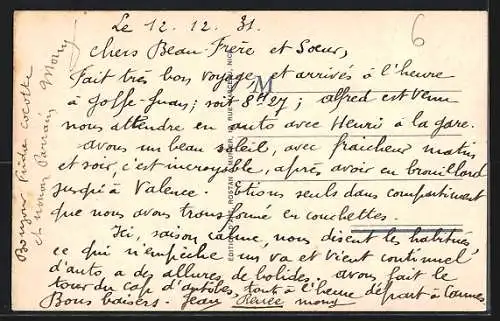 Le 12.12.31.
6
chers Beau-Frère et Soeur,
Fait très bon voyage, et arrivés à l'heure
à Golfe-Juan; soit 8h27; alfred est venu
nous attendre en auto avec Henri à la gare.
avons un beau soleil, avec fraicheur matin
et soir, c'est incroyable, après avoir eu brouillard
jusqu'à Valence. Etions seuls dans compartiment
que nous avons transformé en couchettes.
Ici, saison calme, nous disent les habitués
ce qui n'empêche un va et vient continuel
d'auto a des allures de bolides. avons fait le
tour du cap d'antibes, tout à l'heure départ à Cannes
Bons baisers. Jean Renée mony
Bonjour cocotte
et Parrain Mony
M
EDITIONS ROSTAN